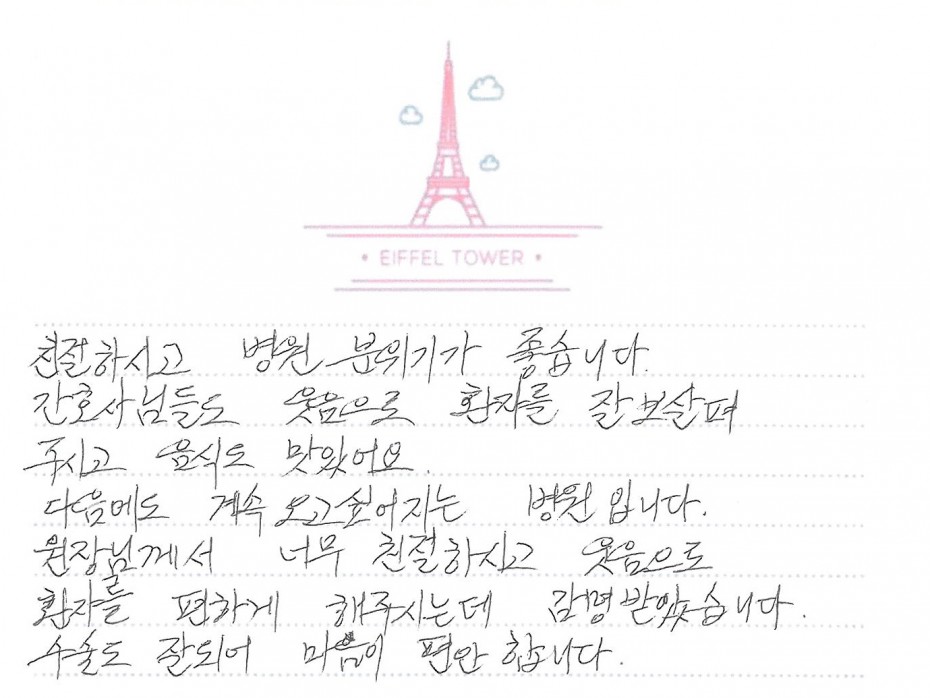 • EIFFEL TOWER •
친절하시고 병원 분위기가 좋습니다.
간호사님들도 웃음으로 환자를 잘보살펴
주시고 음식도 맛있어요.
다음에도 계속 오고싶어지는 병원입니다.
원장님께서 너무 친절하시고 웃음으로
환자를 편하게 해주시는데 감명받았습니다.
수술도 잘되어 마음이 편안합니다.